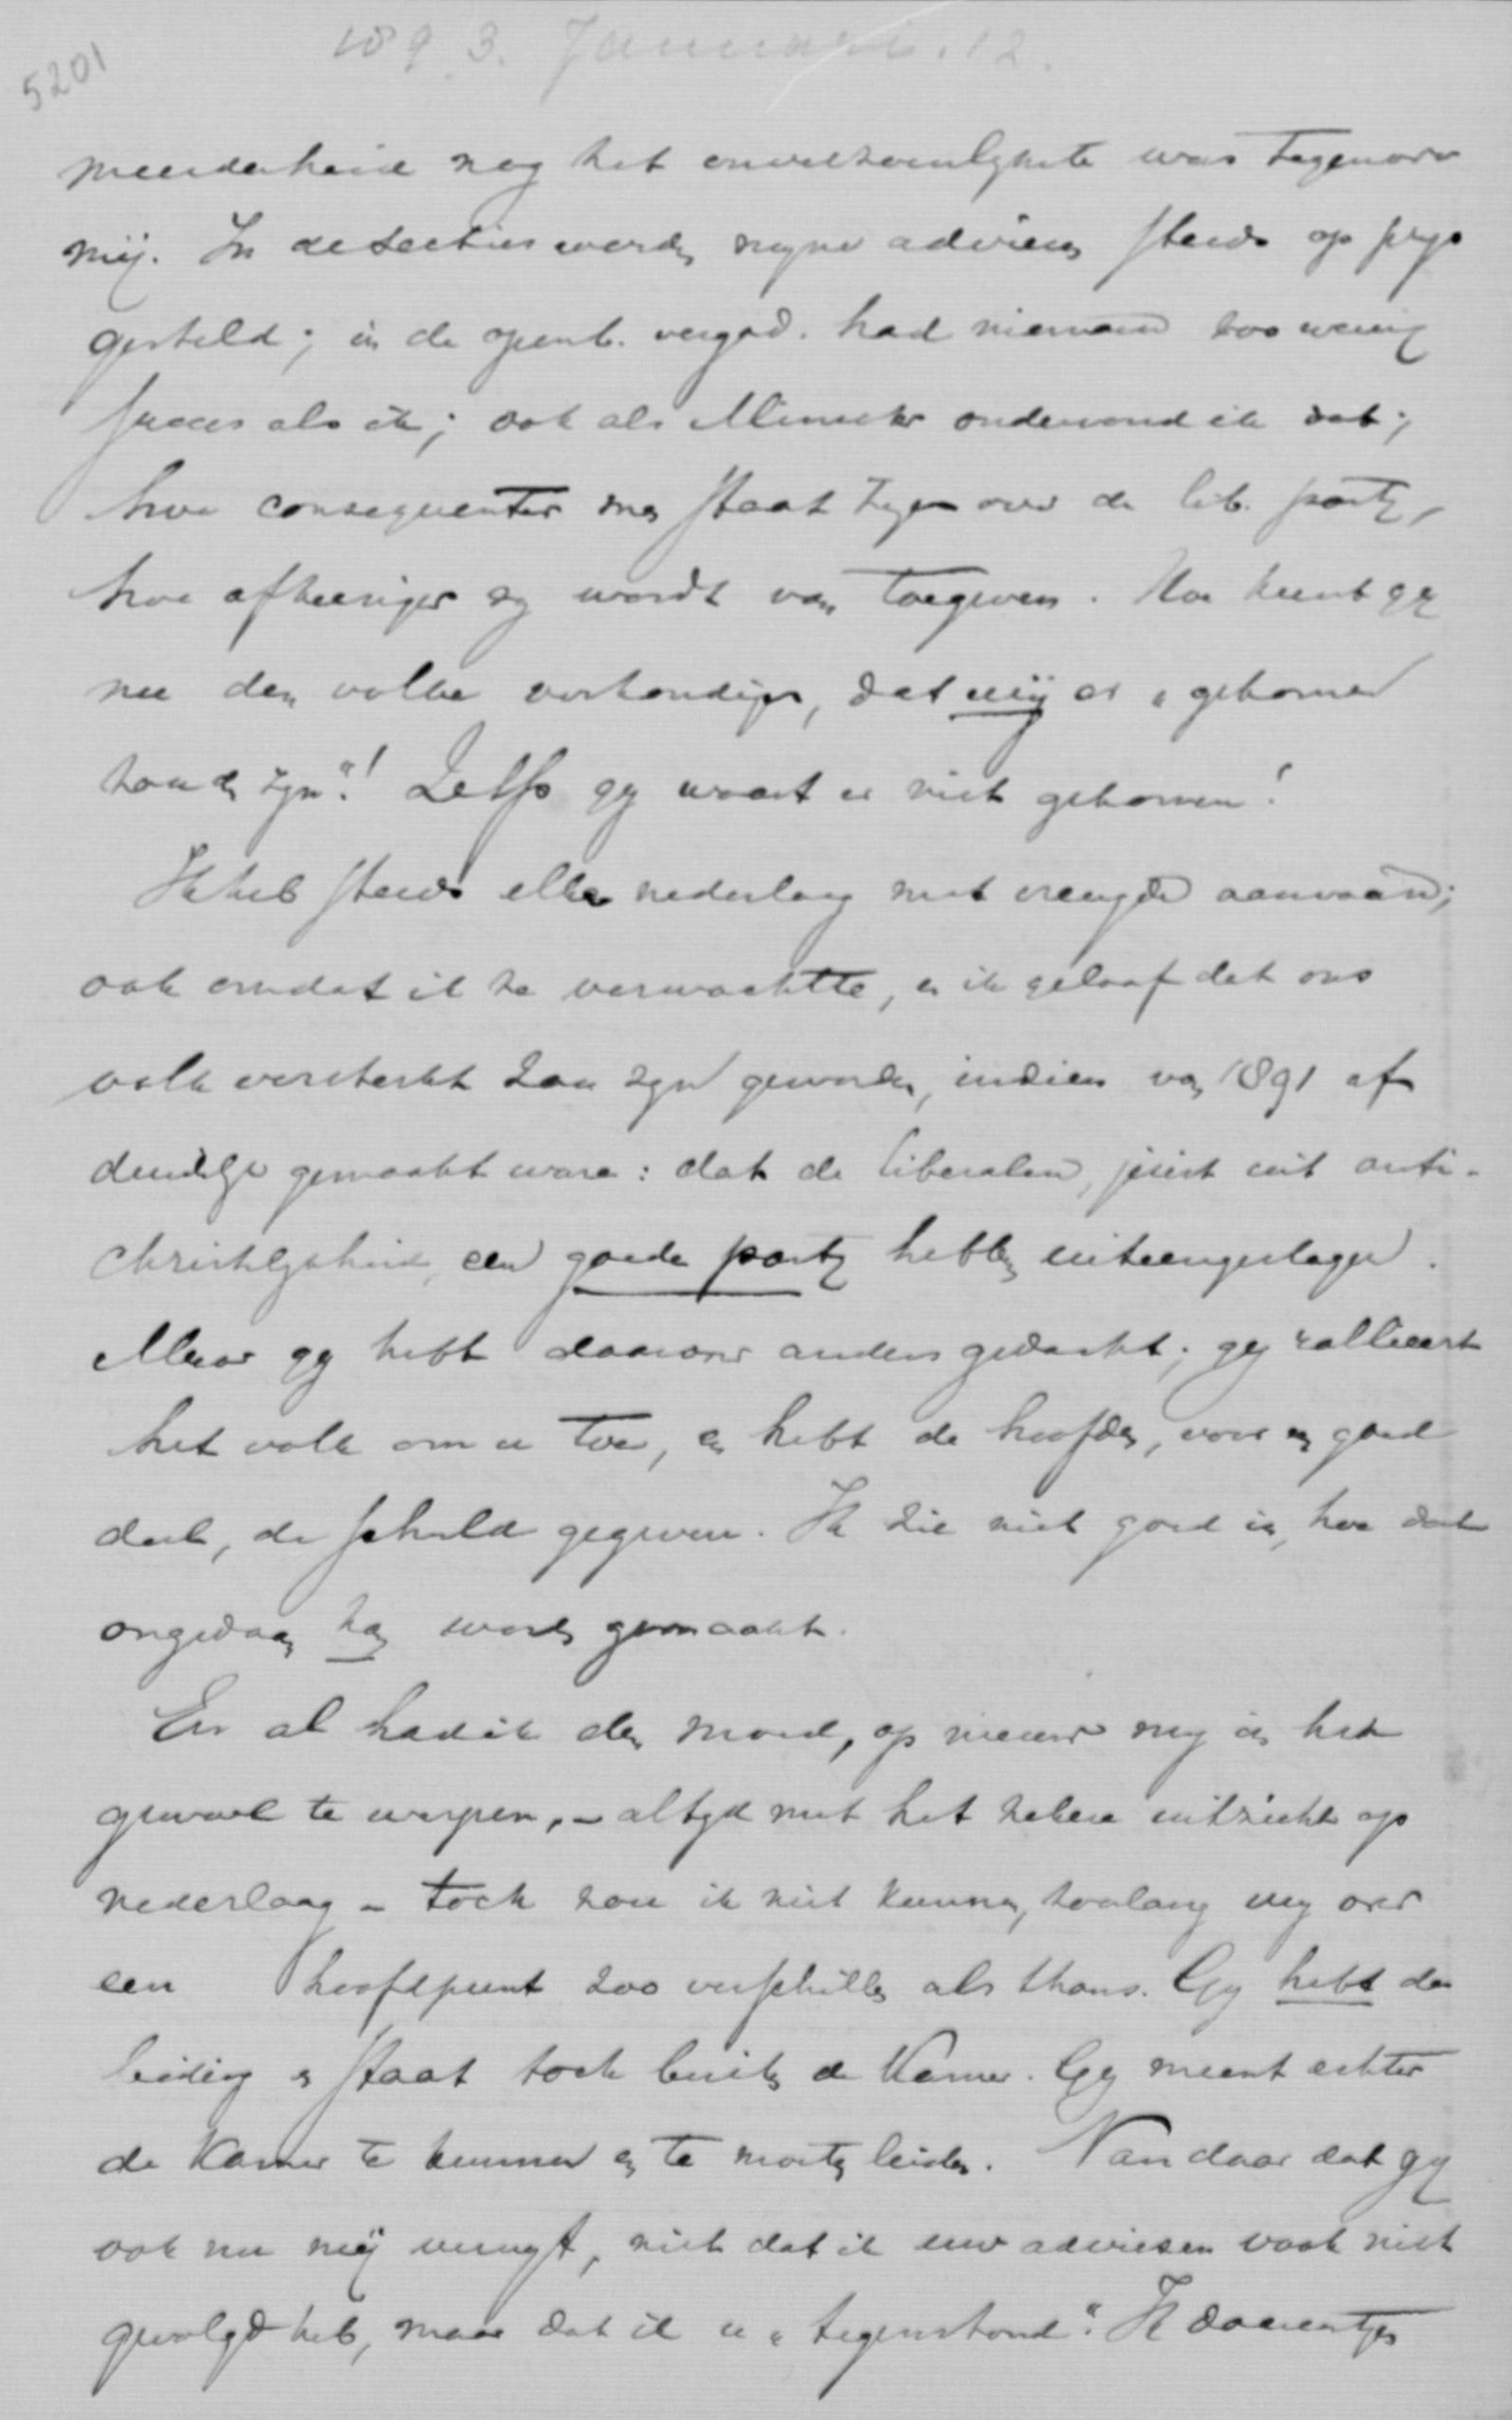 5201
1893. Januari. 12.
meerderheid nog het onverzoenlykste was tegenover
mij. In de secties werden myne adviezen steeds op prys
gesteld; in de openb. vergad. had niemand zoo weinig
succes als ik; ook als Minister ondervond ik dat;
hoe consequenter men staat tegenover de lib. party,
hoe afkeeriger zy wordt van toegeven. Hoe kunt gy
nu den volke verkondigen, dat wij er „gekomen
zouden zyn"! Zelfs gy waart er niet gekomen!
Ik heb steeds elke nederlaag met vreugde aanvaard;
ook omdat ik ze verwachtte, en ik geloof dat ons
volk versterkt zou zyn geworden, indien van 1891 af
duidelyk gemaakt ware: dat de liberalen, juist uit anti-
christelykheid, een goede party hebben uiteengeslagen.
Maar gy hebt daarover anders gedacht; gy rallieert
het volk om u toe, en hebt de hoofden, voor een goed
deel, de schuld gegeven. Ik zie niet goed in, hoe dat
ongedaan kan worden gemaakt.
En al had ik den moed, op nieuw my in het
gewoel te werpen, - altyd met het zekere uitzicht op
nederlaag - toch zou ik niet kunnen, zoolang wy over
een hoofdpunt zoo verschillen als thans. Gy hebt de
leiding en staat toch buiten de Kamer. Gy meent echter
de Kamer te kunnen en te moeten leiden. Van daar dat gy
ook nu mij verwyt, niet dat ik uw adviezen vaak niet
gevolgd heb, maar dat ik u „tegenstond". Ik daarentegen